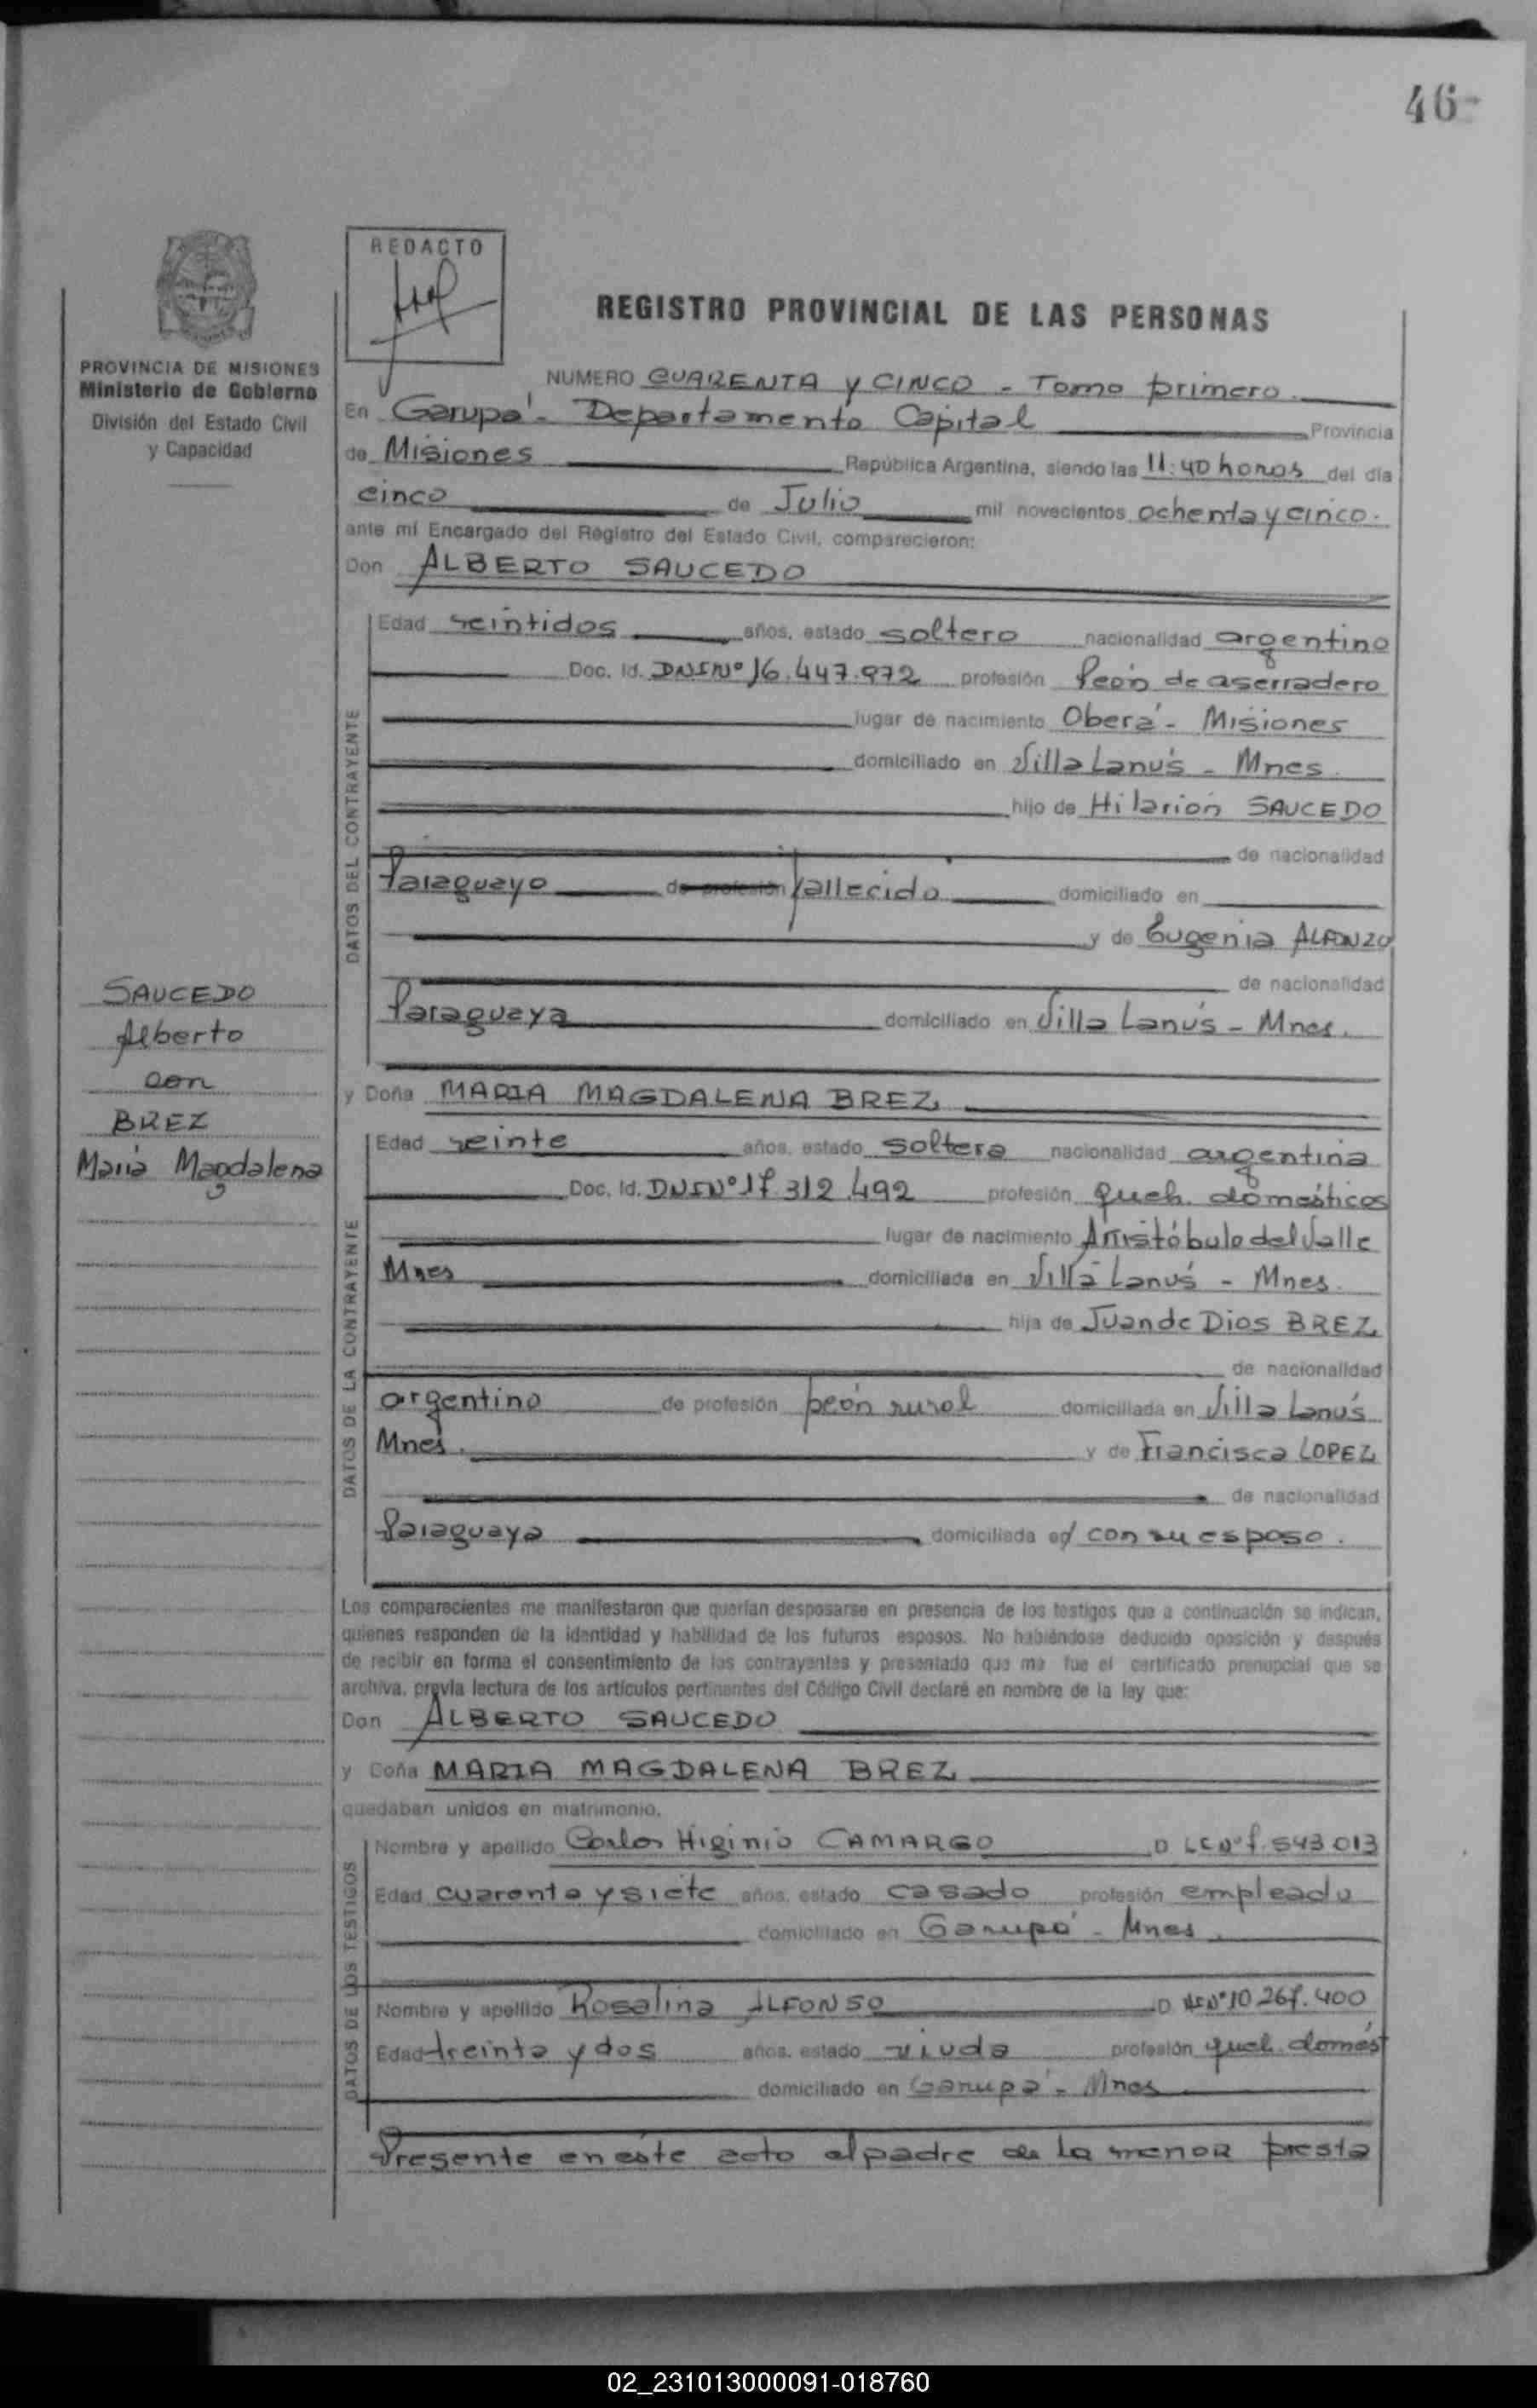 46-
REDACTO
REGISTRO PROVINCIAL DE LAS PERSONAS
PROVINCIA DE MISIONES
Ministerio de Gobierno
División del Estado Civil
y Capacidad
NUMERO CUARENTA y CINCO - Tomo primero.
En Garupá - Departamento Capital Provincia
de Misiones República Argentina, siendo las 11:40 horas del día
cinco de Julio mil novecientos ochenta y cinco.
ante mí Encargado del Registro del Estado Civil, comparecieron:
Don ALBERTO SAUCEDO
DATOS DEL CONTRAYENTE
Edad veintidos años, estado soltero nacionalidad argentino
Doc. Id. DNI Nº 16.447.972 profesión Peón de aserradero
lugar de nacimiento Oberá - Misiones
domiciliado en Villa Lanús - Mnes.
hijo de Hilarión SAUCEDO
de nacionalidad
Paraguayo de profesión fallecido domiciliado en
y de Eugenia ALFONZO
de nacionalidad
Paraguaya domiciliado en Villa Lanús - Mnes.
SAUCEDO
Alberto
con
BREZ
María Magdalena
y Doña MARIA MAGDALENA BREZ
DATOS DE LA CONTRAYENTE
Edad veinte años, estado soltera nacionalidad argentina
Doc. Id. DNI Nº 17.312.492 profesión queh. domésticos
lugar de nacimiento Aristóbulo del Valle
Mnes domiciliada en Villa Lanús - Mnes.
hija de Juan de Dios BREZ
de nacionalidad
argentino de profesión peón rural domiciliada en Villa Lanús
Mnes. y de Francisca LOPEZ
de nacionalidad
Paraguaya domiciliada en con su esposo.
Los comparecientes me manifestaron que querían desposarse en presencia de los testigos que a continuación se indican,
quienes responden de la identidad y habilidad de los futuros esposos. No habiéndose deducido oposición y después
de recibir en forma el consentimiento de los contrayentes y presentado que me fue el certificado prenupcial que se
archiva, previa lectura de los artículos pertinentes del Código Civil declaré en nombre de la ley que:
Don ALBERTO SAUCEDO
y Doña MARIA MAGDALENA BREZ
quedaban unidos en matrimonio.
DATOS DE LOS TESTIGOS
Nombre y apellido Carlos Higinio CAMARGO D 543 013
Edad cuarenta y siete años, estado casado profesión empleado
domiciliado en Garupá - Mnes.
Nombre y apellido Rosalina ALFONSO D 10.267.400
Edad treinta y dos años, estado viuda profesión queh. domést
domiciliado en Garupá - Mnes
Presente en este acto el padre de la menor presta
02_231013000091-018760